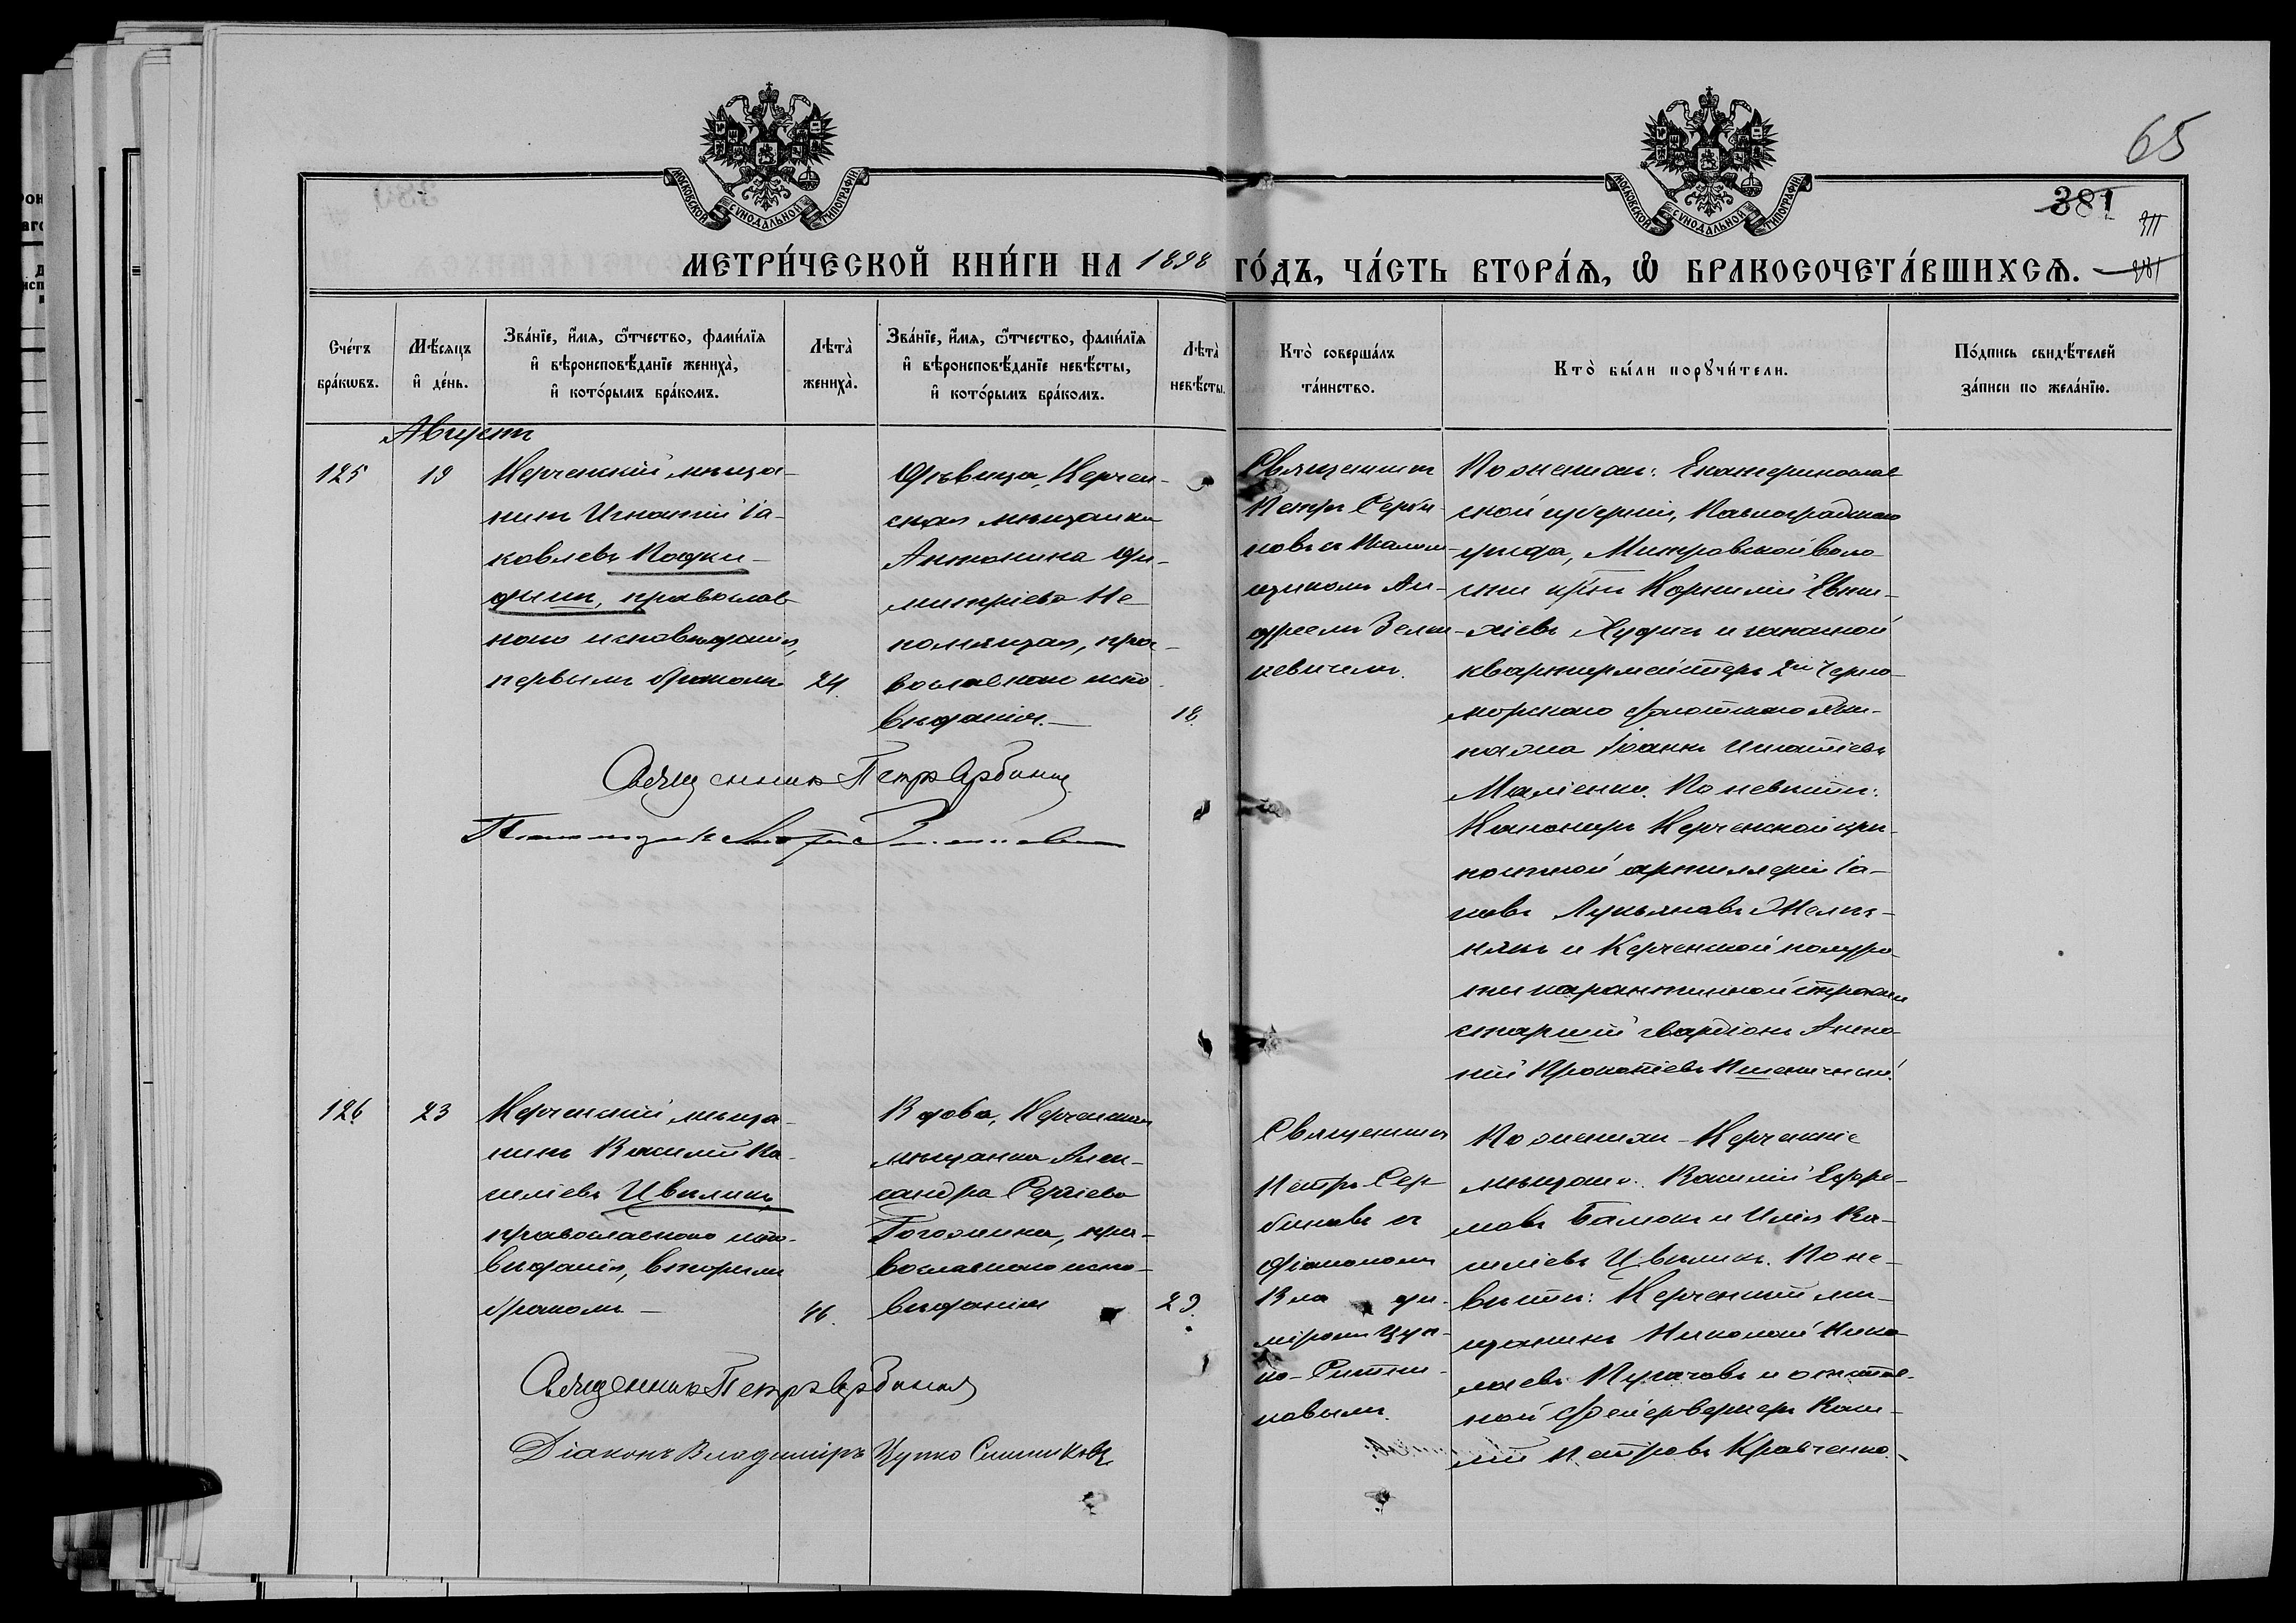 65
381
311
МОСКОВСКОЙ СУНОДАЛЬНОЙ ТИПОГРАФІИ
МОСКОВСКОЙ СУНОДАЛЬНОЙ ТИПОГРАФІИ
МЕТРИ́ЧЕСКОЙ КНИ́ГИ НА 1898 ГО́ДЪ, ЧА́СТЬ ВТОРА́Ѧ, Ѿ БРАКОСОЧЕТА́ВШИХСѦ.
Сче́тъ бра́кѡвъ.
Мѣ́сяцъ и҆ де́нь.
Зва́нїе, и҆́мя, ѻ҆́тчество, фами́лїя
и҆ вѣроисповѣ́данїе жениха̀,
и҆ кото́рымъ бра́комъ.
Лѣта̀ жениха̀.
Зва́нїе, и҆́мя, ѻ҆́тчество, фами́лїя
и҆ вѣроисповѣ́данїе невѣ́сты,
и҆ кото́рымъ бра́комъ.
Лѣта̀ невѣ́сты.
Кто̀ соверша́лъ
та́инство.
Кто̀ бы́ли порꙋчи́тели.
По́дпись свидѣ́телей
за́писи по жела́нїю.
Августъ
125
19
Керченскій мѣща-
нинъ Игнатій Іа-
ковлевъ
православ
наго исповѣданія,
первымъ бракомъ
24.
Дѣвица, Керчен-
ская мѣщанка
Антонина Ди-
митріева Не
помнящая, пра-
вославнаго испо
вѣданія.
18.
Священникъ
Петръ Серби-
новъ съ псалом-
щикомъ Ан-
дреемъ Зелин-
кевичемъ.
По женихѣ: Екатеринослав
ской губерніи, Павлоградскаго
уѣзда,
сти кр-нъ Корнилій Евти-
хіевъ Худикъ и
квартирмейстеръ 2й Черно-
морскаго флотскаго эки-
пажа Іоаннъ Игнатіевъ
По невѣстѣ:
Канониръ Керченской крѣ-
постной артиллеріи Іа-
ковъ Лукьяновъ
и Керченской полуро-
ты карантинной стражи
старшій гвардіонъ Анто-
ній Прокопіевъ Пшеничный.
Священникъ Петръ Сербиновъ
Псаломщикъ Андрей
126
23
Керченскій мѣща-
нинъ Василій Ва-
силіевъ Цвиликъ,
православнаго испо-
вѣданія, вторымъ
бракомъ
46.
Вдова, Керченская
мѣщанка Алек-
сандра Сергіева
Гоголина, пра-
вославнаго испо-
вѣданія
29.
Священникъ
Петръ Сер-
биновъ съ
діакономъ
Вла ди-
міромъ Цуп-
ко-Ситни-
ковымъ.
По женихѣ - Керченскіе
мѣщане: Василій Ефре-
мовъ Балюкъ и Илія Ва-
силіевъ Цвиликъ. По не-
вѣстѣ: Керченскій мѣ-
щанинъ Николай Нико-
лаевъ Пугачовъ и отстав-
ной фейерверкеръ Васи-
лій Петровъ Кравченко.
Священникъ Петръ Сербиновъ
Діаконъ Владиміръ Цупко Ситниковъ